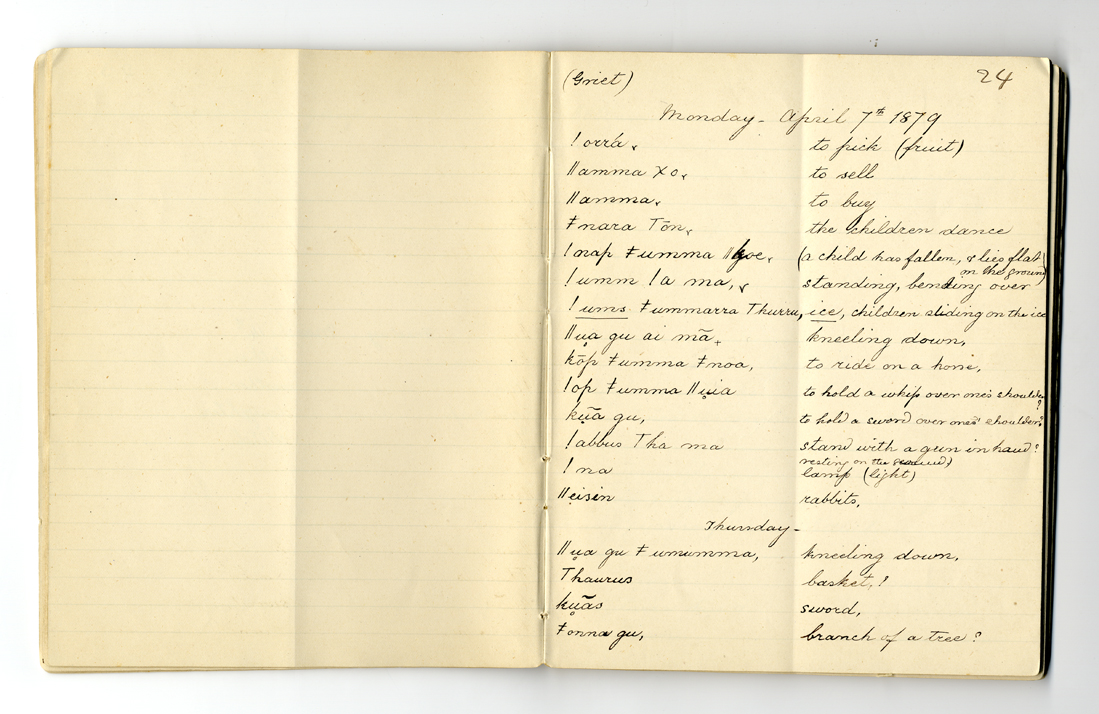 (Griet) 24
Monday - April 7th 1879
!orrá, to pick (fruit)
ǁamma χo, to sell
ǁamma, to buy
ǂnara Tōn, the children dance
ǀnap ǂumma ǁgoe, (a child has fallen, & lies flat
on the ground)
ǀumm ǀa ma, standing, bending over
ǃums ǂummarra Thurru, ice, children sliding on the ice
ǁu̥a gu ai mā, kneeling down,
kōp ǂumma ǂnoa, to ride on a horse,
ǀop ǂumma ǁu̥ia to hold a whip over one's shoulder?
ku̥ā gu, to hold a sword over ones' shoulder?
ǀabbus Tha ma stand with a gun in hand?
resting on the ground)
ǃna lamp (light)
ǁeisin rabbits,
Thursday -
ǁu̥a gu ǂumumma, kneeling down,
Thaurus basket,?
ku̥ās sword,
ǂonna gu, branch of a tree?